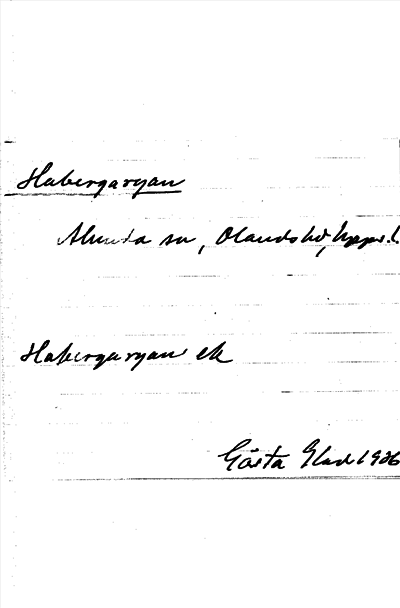 Habergaryan
Alunda sn, Olands hd, Upps. l.
Habergaryan ek
Gösta Elad 1936